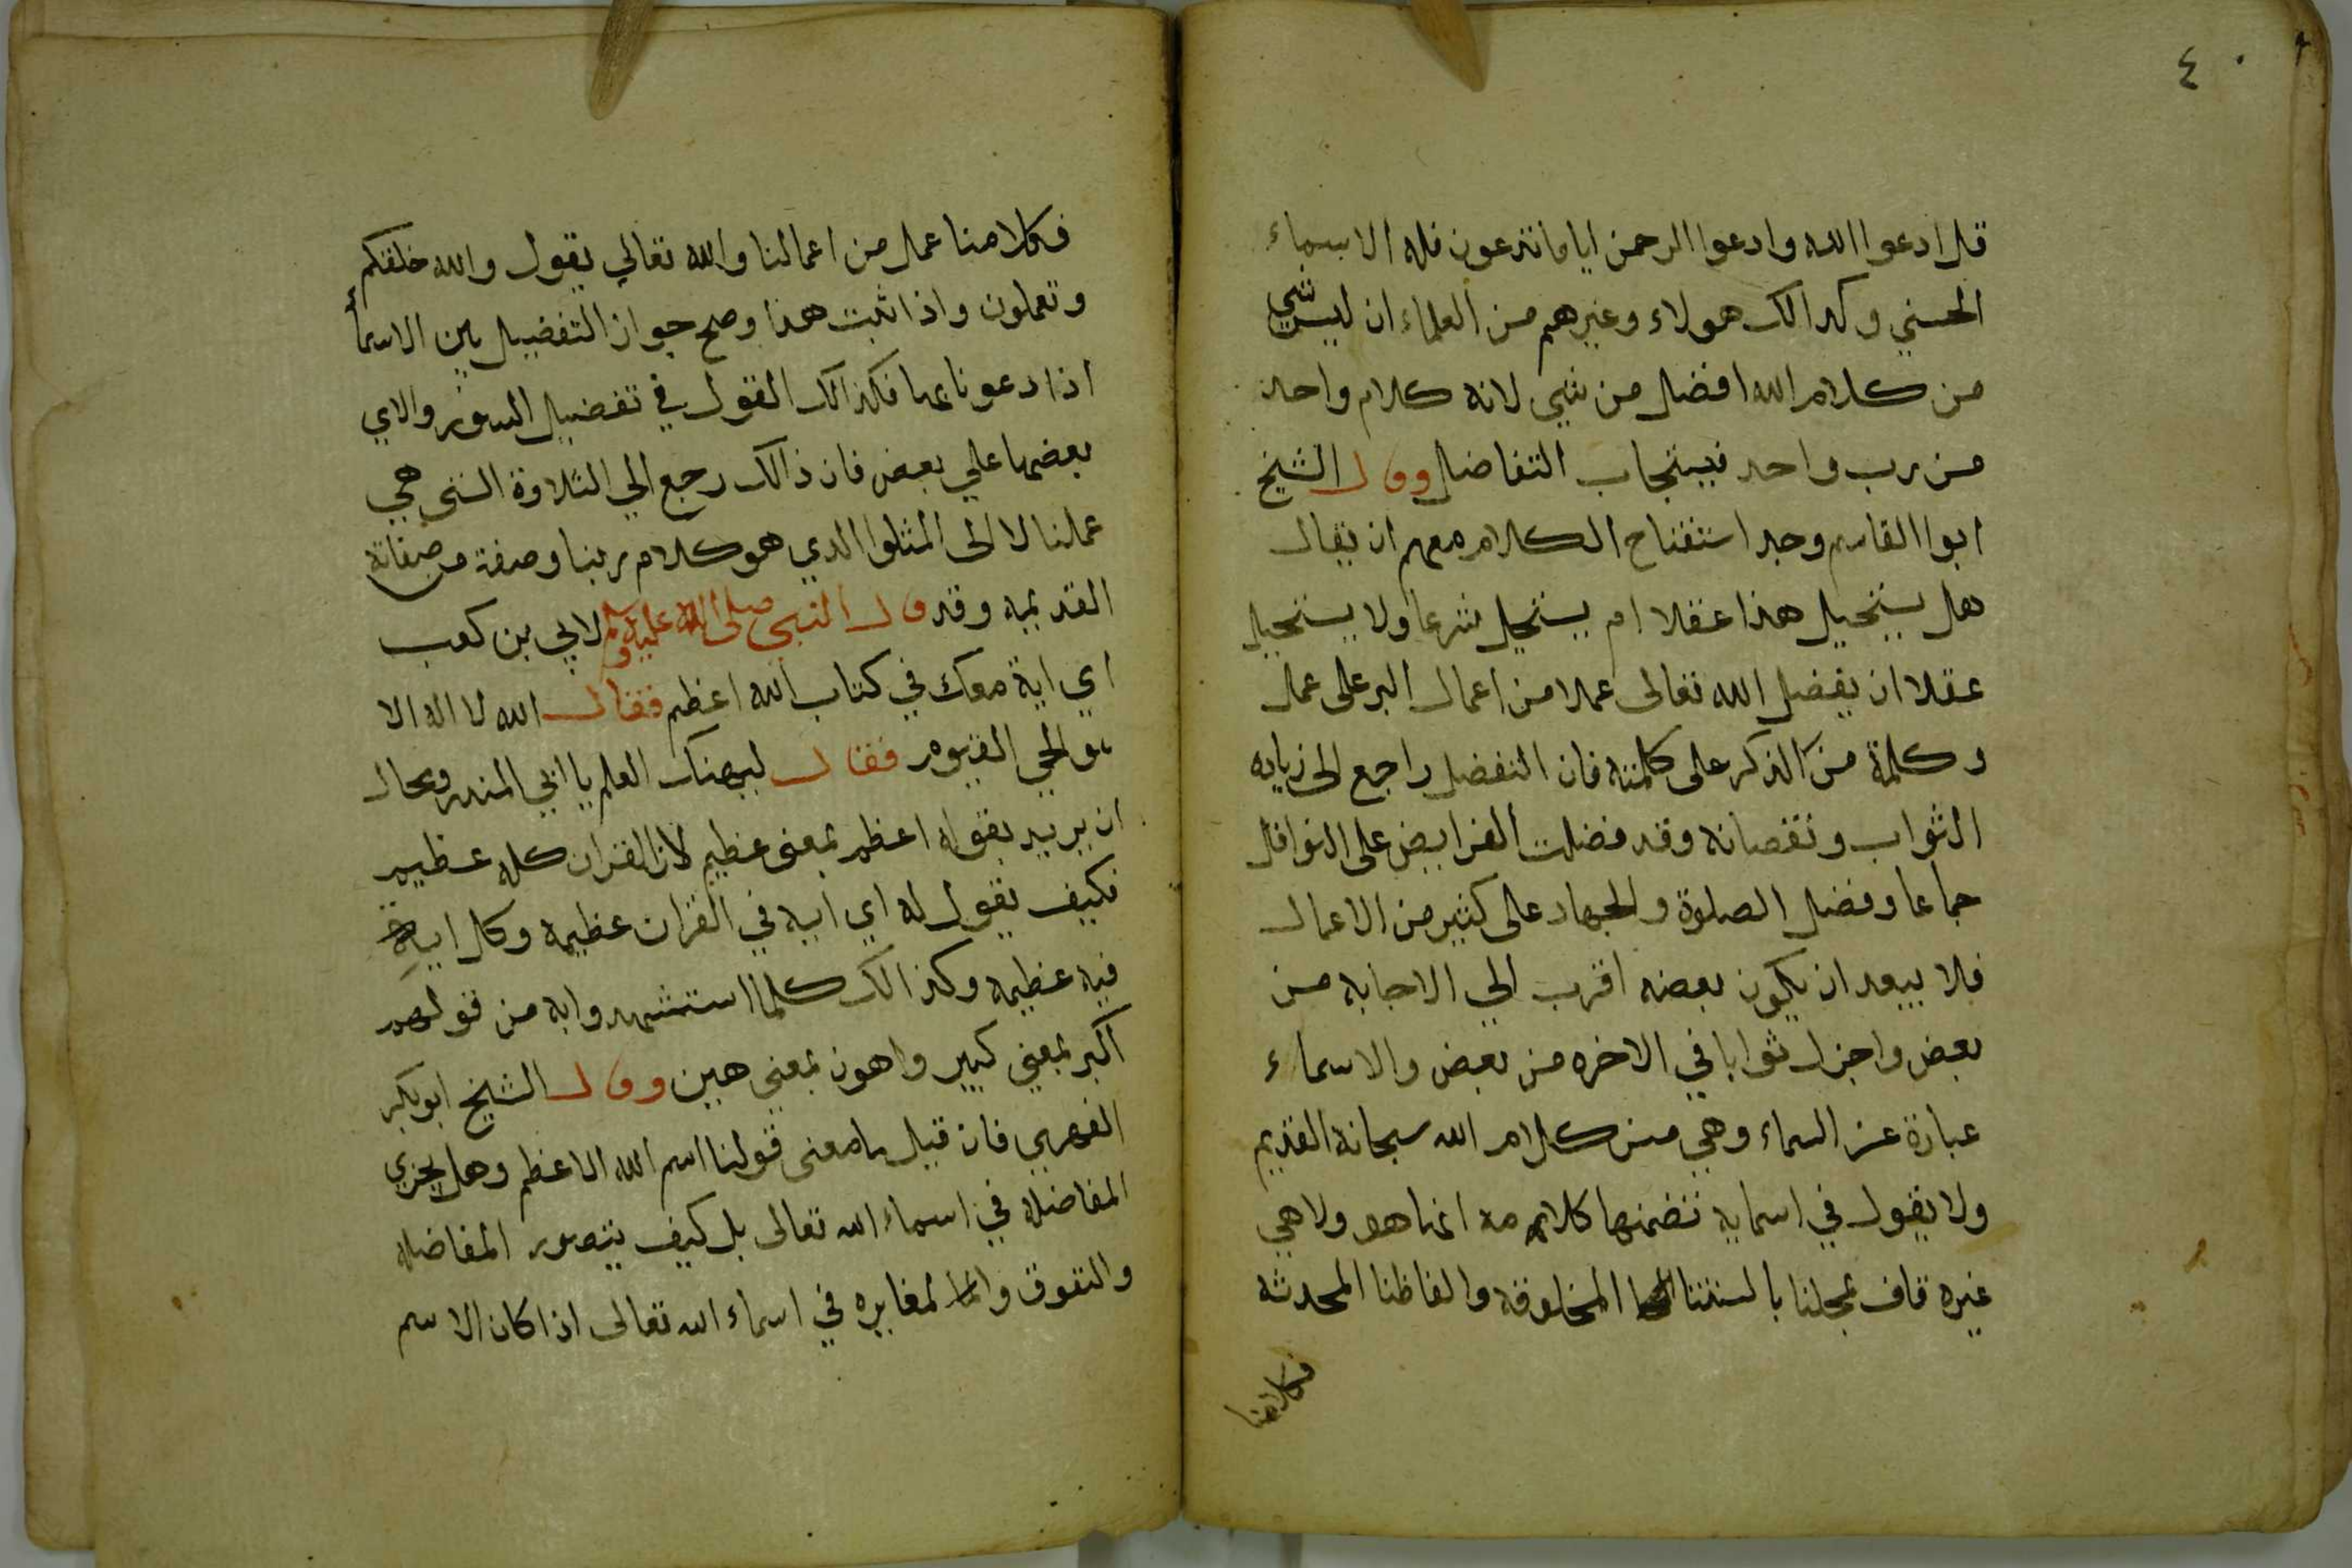 ٤
قل ادعوا الله وادعوا الرحمن اياما تدعون فله الاسماء
الحسني وكدالك هولاء وغيرهم من العلماء ان ليس شي
من كلام الله افضل من شي لانه كلام واحد
من رب واحد فيستجاب التفاضل وقال الشيخ
ابوا القاسم وجه استفتاح الكلام معهم ان يقال
هل يستحيل هذا عقلا ام يستحيل شرعا ولا يستحيل
عقلا ان يفضل الله تعالى عملا من اعمال البر على عمل
وكلمة من الذكر على كلمته فان التفضل راجع الى زياده
الثواب ونقصانه وقد فضلت الفرايض على النوافل
جماعا وفضل الصلوة والجهاد على كثير من الاعمال
فلا يبعد ان يكون بعضه اقرب الي الاجابه من
بعض واجزل ثوابا في الاخره من بعض والاسماء
عبارة عن السماء وهي من كلام الله سبحانه القديم
ولا يقول في اسمايه تتضمنها كلامه انما هو ولا هي
غيره فاف بمجلنا بالسنتنا المخلوقه والفاظنا المحدثه
فكلامنا
فكلامنا عمل من اعمالنا والله تعالي يقول والله خلقكم
وتعملون واذا ثبت هذا وصح جواز التفضيل بين الاسمأ
اذا دعونا بها فكذالك القول في تفضيل السور والاي
بعضها علي بعض فان ذالك رجع الي التلاوة التى هي
عملنا لا الى المتلوا الدي هو كلام ربنا وصفة من صفاته
القديمه وقد قال النبي صلى الله عليه وسلم لابي بن كعب
اي اية معك في كتاب الله اعظم فقال الله لا اله الا
هو الحي القيوم فقال ليهنك العلم يا ابي المنذر ومحال
ان يريد بقوله اعظم بمعنى عظيم لان القران كله عظيم
فكيف يقول له اي ايه في القران عظيمه وكل اية
فيه عظيمه وكذالك كلما استشهدوا به من قولهم
اكبر بمعني كبير واهون بمعني هين وقال الشيخ ابوبكر
الفهري فان قيل ما معنى قولنا اسم الله الاعظم وهل يجزي
المفاضلة في اسماء الله تعالى بل كيف يتصور المفاضله
والتفوق والمغايره في اسماء الله تعالى اذا كان الاسم